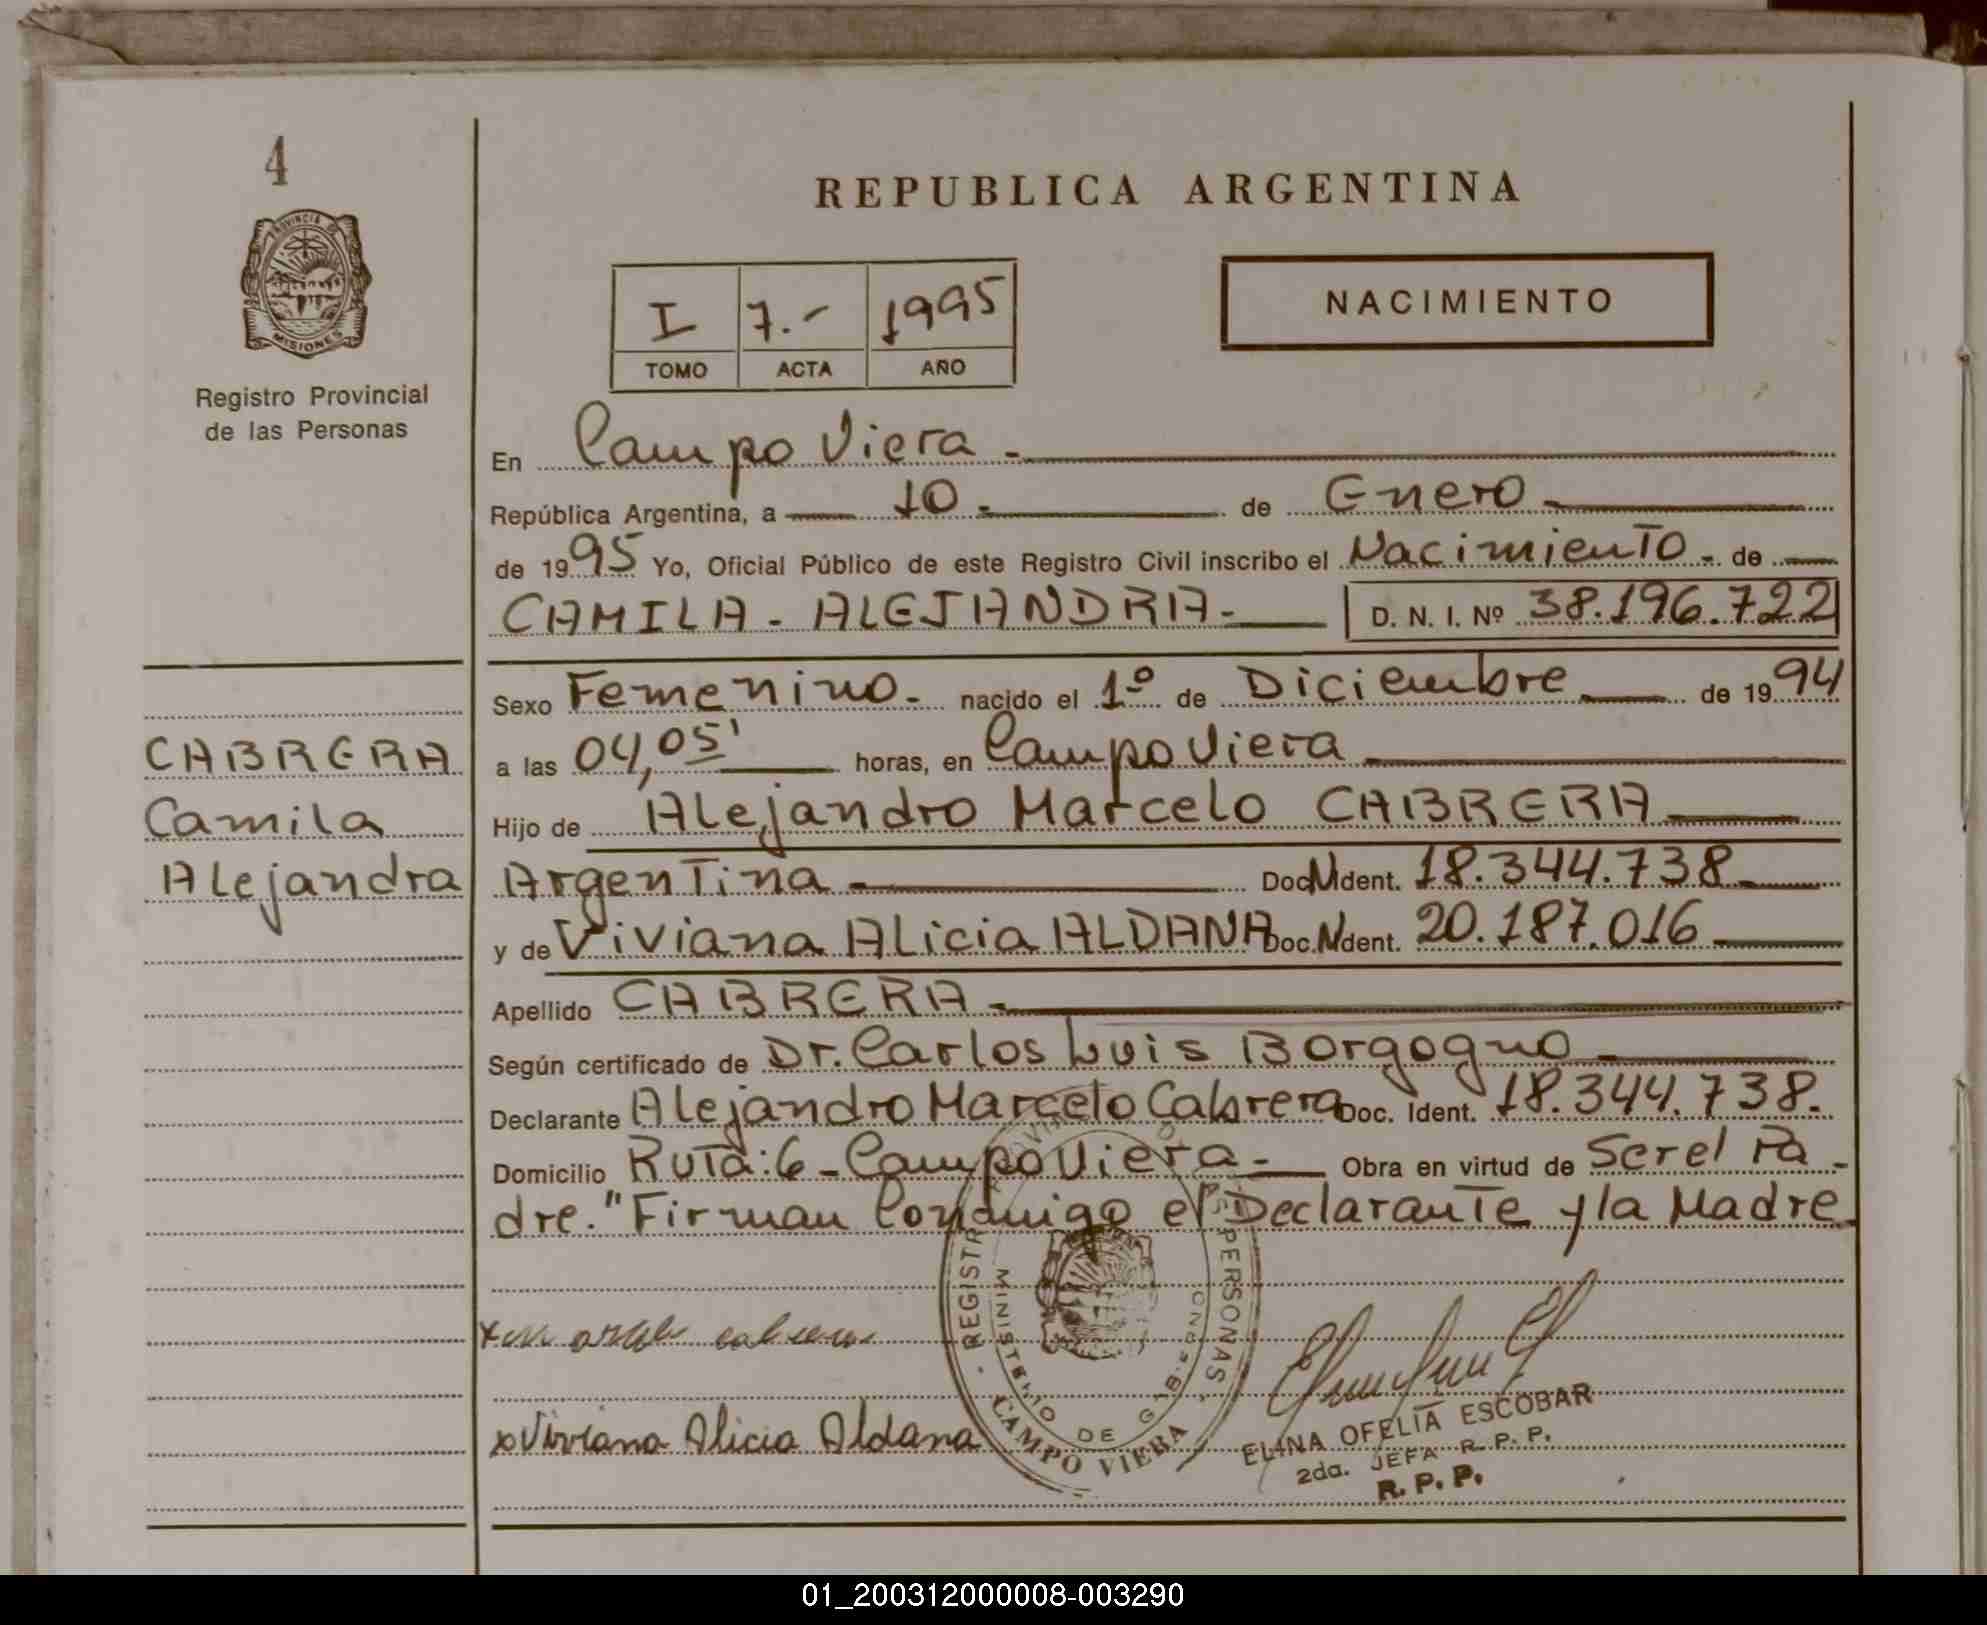 4
REPUBLICA ARGENTINA
PROVINCIA DE
MISIONES
Registro Provincial
de las Personas
I 7.- 1995
TOMO ACTA AÑO
NACIMIENTO
En Campo Viera -
República Argentina, a 10 - de Enero -
de 1995 Yo, Oficial Público de este Registro Civil inscribo el Nacimiento - de
CAMILA - ALEJANDRA - D. N. I. Nº 38.196.722
Sexo Femenino - nacido el 1º de Diciembre de 1994
a las 04,05' horas, en Campo Viera
Hijo de Alejandro Marcelo CABRERA
Argentina - Doc. Ident. 18.344.738 -
y de Viviana Alicia ALDANA Doc. Ident. 20.187.016
Apellido CABRERA -
Según certificado de Dr. Carlos Luis Borgogno -
Declarante Alejandro Marcelo Cabrera Doc. Ident. 18.344.738.
Domicilio Ruta: 6 - Campo Viera - Obra en virtud de Ser el Pa -
dre." Firman Conmigo el Declarante y la Madre
CABRERA
Camila
Alejandra
x Viviana Alicia Aldana
REGISTRO PERSONAS
MINISTERIO DE GOBIERNO
CAMPO VIERA
ELINA OFELIA ESCOBAR
2da. JEFA R. P. P.
R. P. P.
01_200312000008-003290